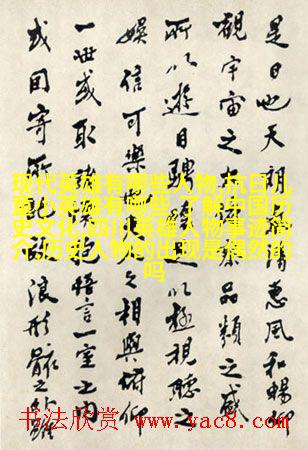 是日也天朗清惠風和暢仰
觀宇宙之察品類之盛
所以遊目騁足以極視聽之
娛信可樂之相與俯仰
一世或取諸抱悟言一室之內
或因寄所託浪形骸之外雖
现代英雄有哪些人物,抗日儿
童小英雄有哪些,了解中国历
史文化,四川英雄人物事迹简
介,历史人物的出现是偶然的
吗
书法欣赏 www.yac8.com